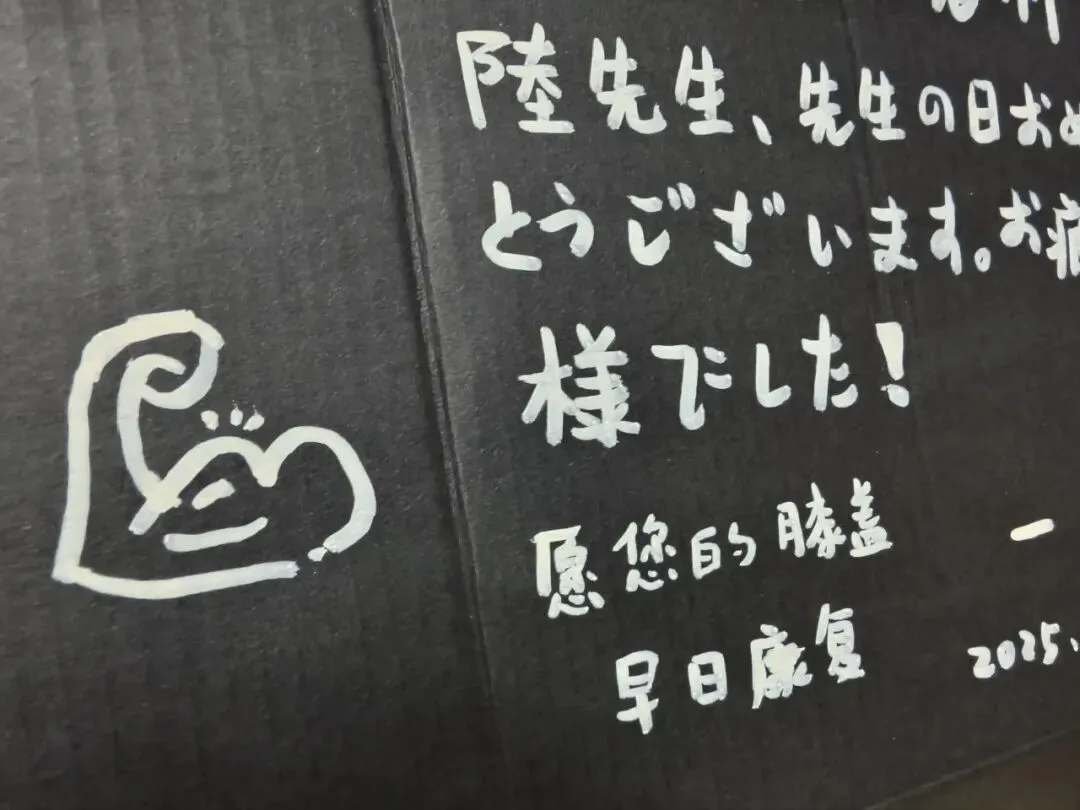 陸先生、先生の日おめ
とうございます。お疲
様でした!
愿您的膝盖
早日康复
一
2025.